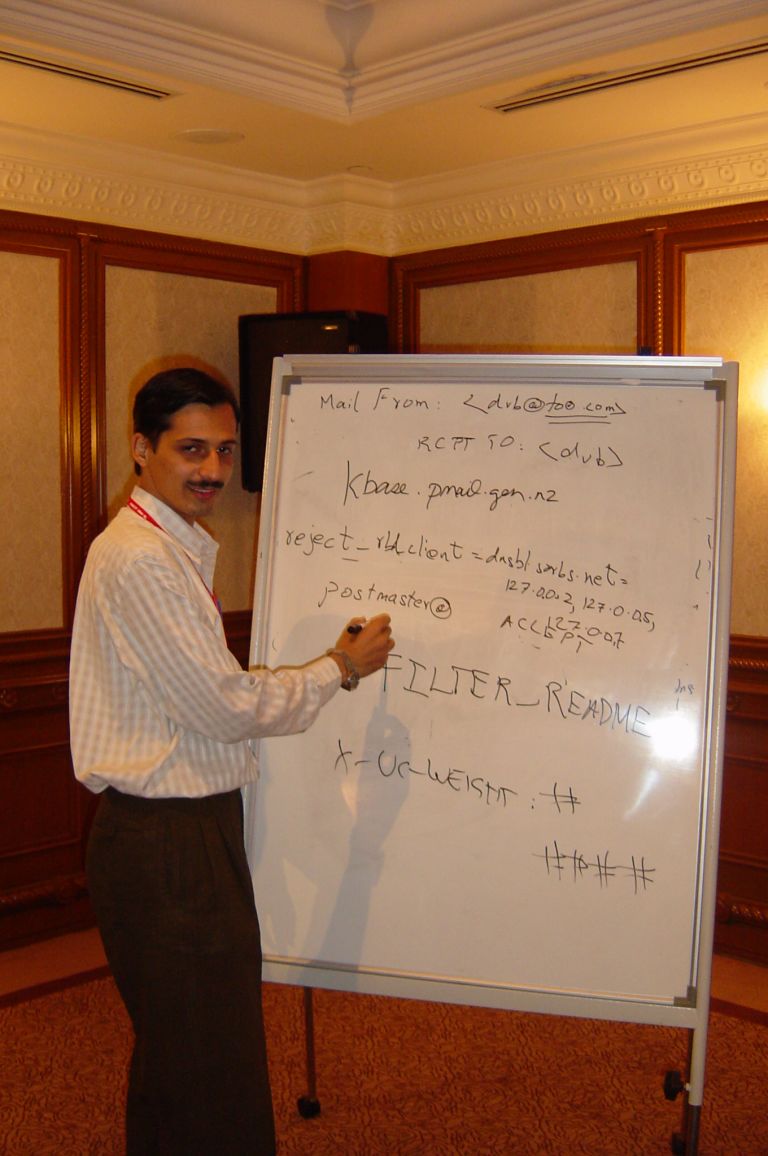 Mail From: <dvb@foo.com>
RCPT TO: <dvb>
kbase.pmail.gen.nz
reject_rbl client = dnsbl.sorbs.net=
127.0.0.2, 127.0.0.5,
postmaster@
127.0.0.7
ACCEPT
FILTER_README
X-UC-WEIGHT : #
####